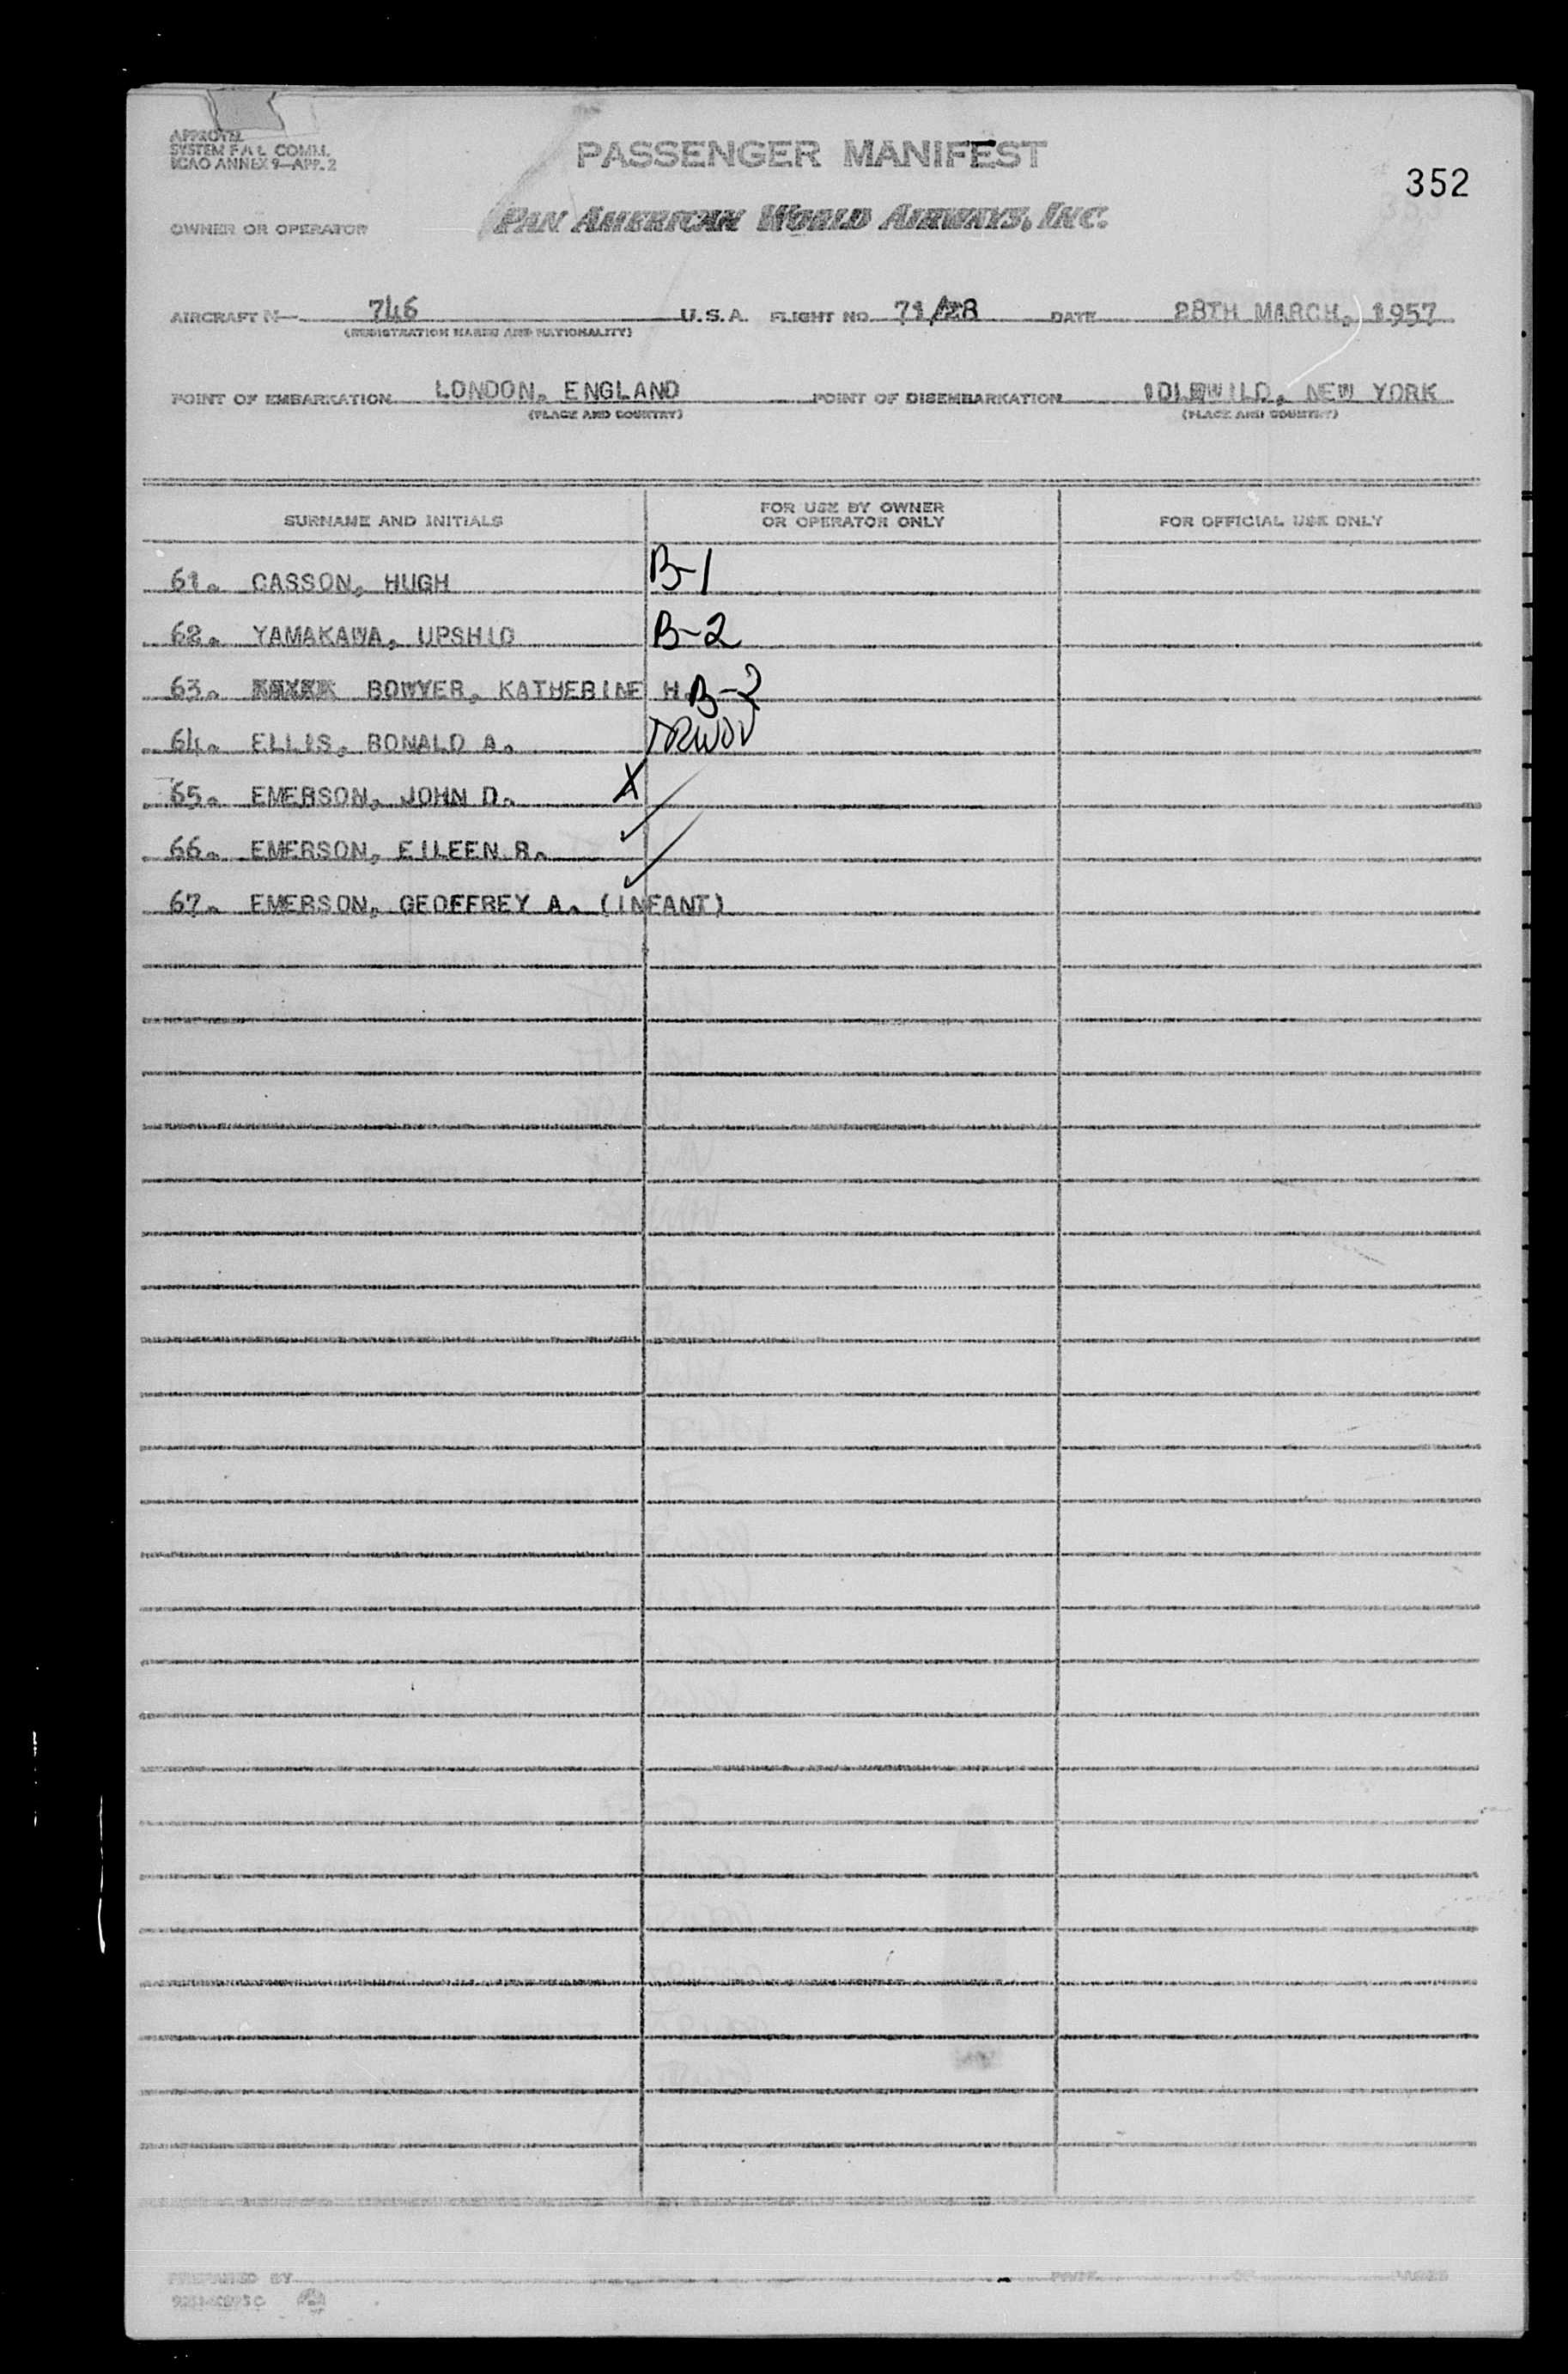 APPROVED
SYSTEM F A L COMM.
ICAO ANNEX 9—APP. 2
PASSENGER MANIFEST
352
OWNER OR OPERATOR
PAN AMERICAN WORLD AIRWAYS, INC.
AIRCRAFT N— 746 U.S.A. FLIGHT NO. 71/28 DATE 28TH MARCH, 1957
(REGISTRATION MARKS AND NATIONALITY)
POINT OF EMBARKATION LONDON, ENGLAND POINT OF DISEMBARKATION IDLEWILD, NEW YORK
(PLACE AND COUNTRY) (PLACE AND COUNTRY)
SURNAME AND INITIALS FOR USE BY OWNER OR OPERATOR ONLY FOR OFFICIAL USE ONLY
61. CASSON, HUGH B-1
62. YAMAKAWA, UPSHIO B-2
63. BOWYER, KATHERINE H. B-2
64. ELLIS, RONALD A.
65. EMERSON, JOHN D. X
66. EMERSON, EILEEN R. ✓
67. EMERSON, GEOFFREY A. (INFANT) ✓
PREPARED BY PAGE OF PAGES